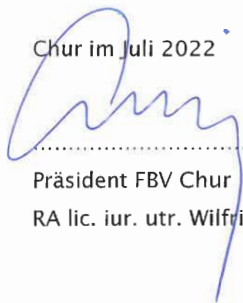 Chur im Juli 2022
Präsident FBV Chur
RA lic. iur. utr. Wilfri